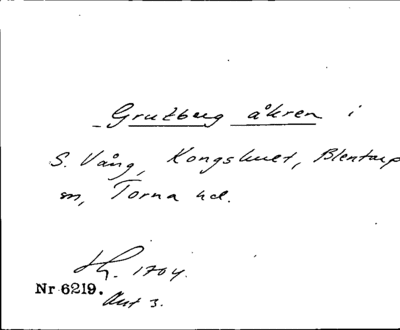 Grutberg åkren i
S. Vång, Kongshult, Blentarp
sn, Torna hd.
Lh. 1704.
Nr 6219.
Akt 3.